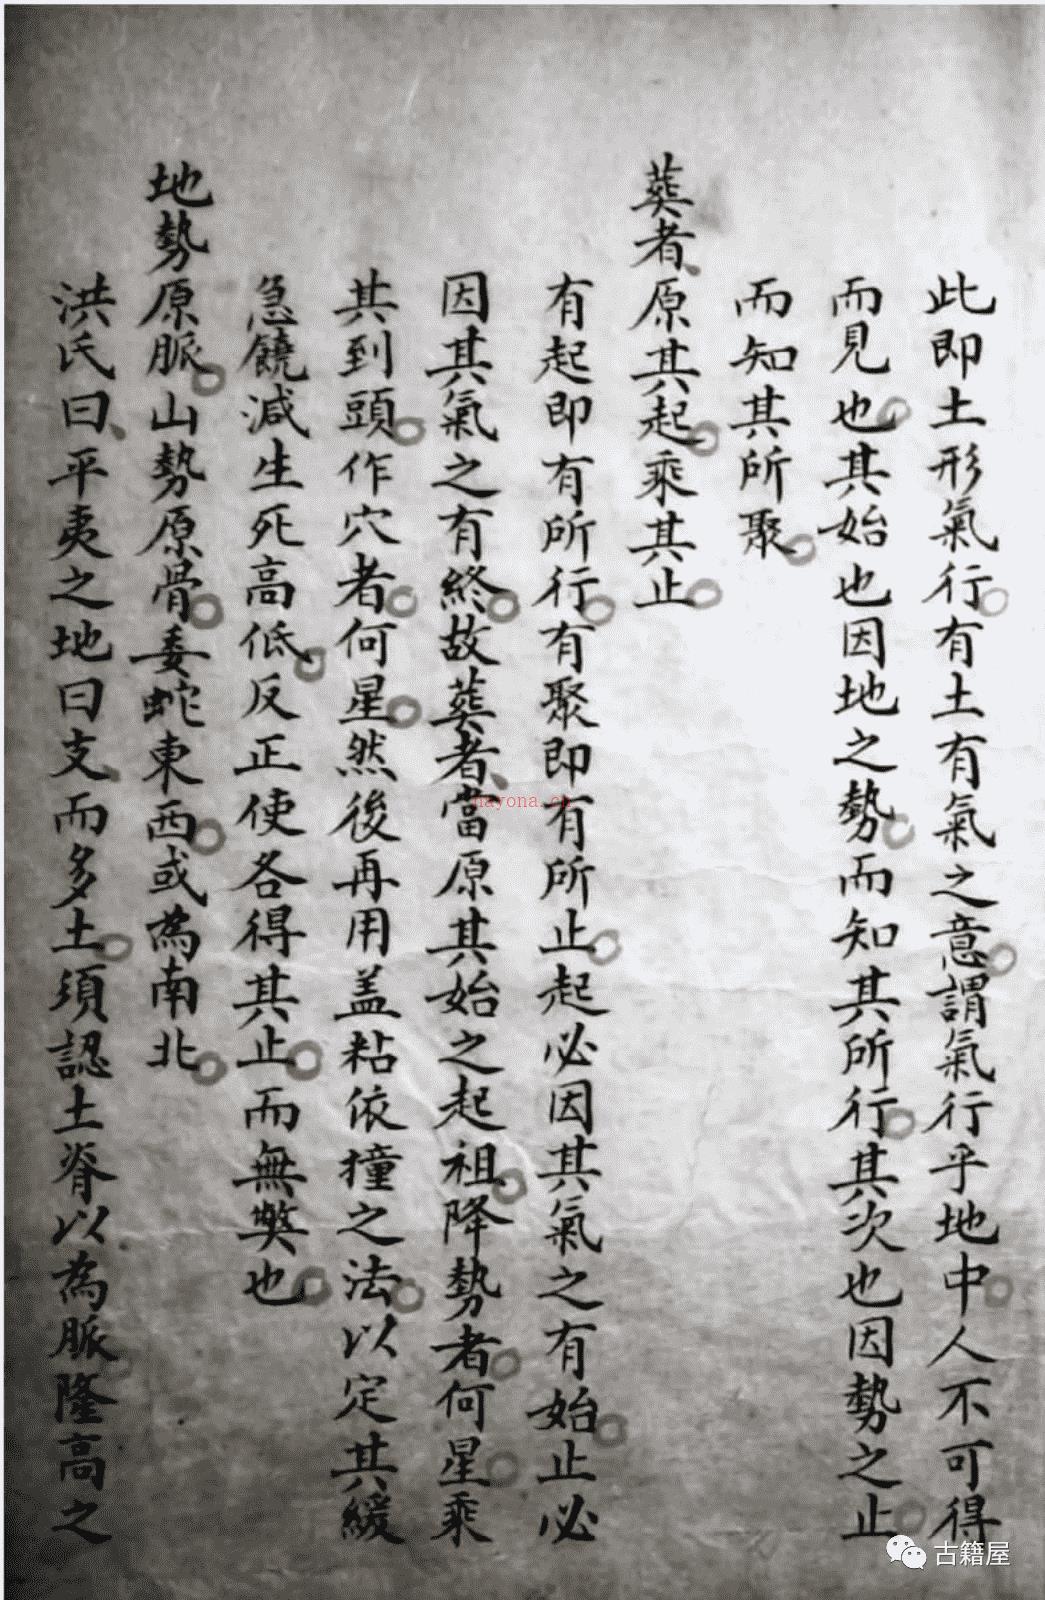 此即土形氣行有土有氣之意謂氣行乎地中人不可得
而見也其始也因地之勢而知其所行其次也因勢之止
而知其所聚
葬者原其起乘其止
有起即有所行有聚即有所止起必因其氣之有始止必
因其氣之有終故葬者當原其始之起祖降勢者何星乘
其到頭作穴者何星然後再用盖粘依撞之法以定其緩
急饒減生死高低反正使各得其止而無弊也
地勢原脈山勢原骨委蛇東西或為南北
洪氏曰平夷之地曰支而多土須認土脊以為脈隆高之
nayona.cn
古籍屋